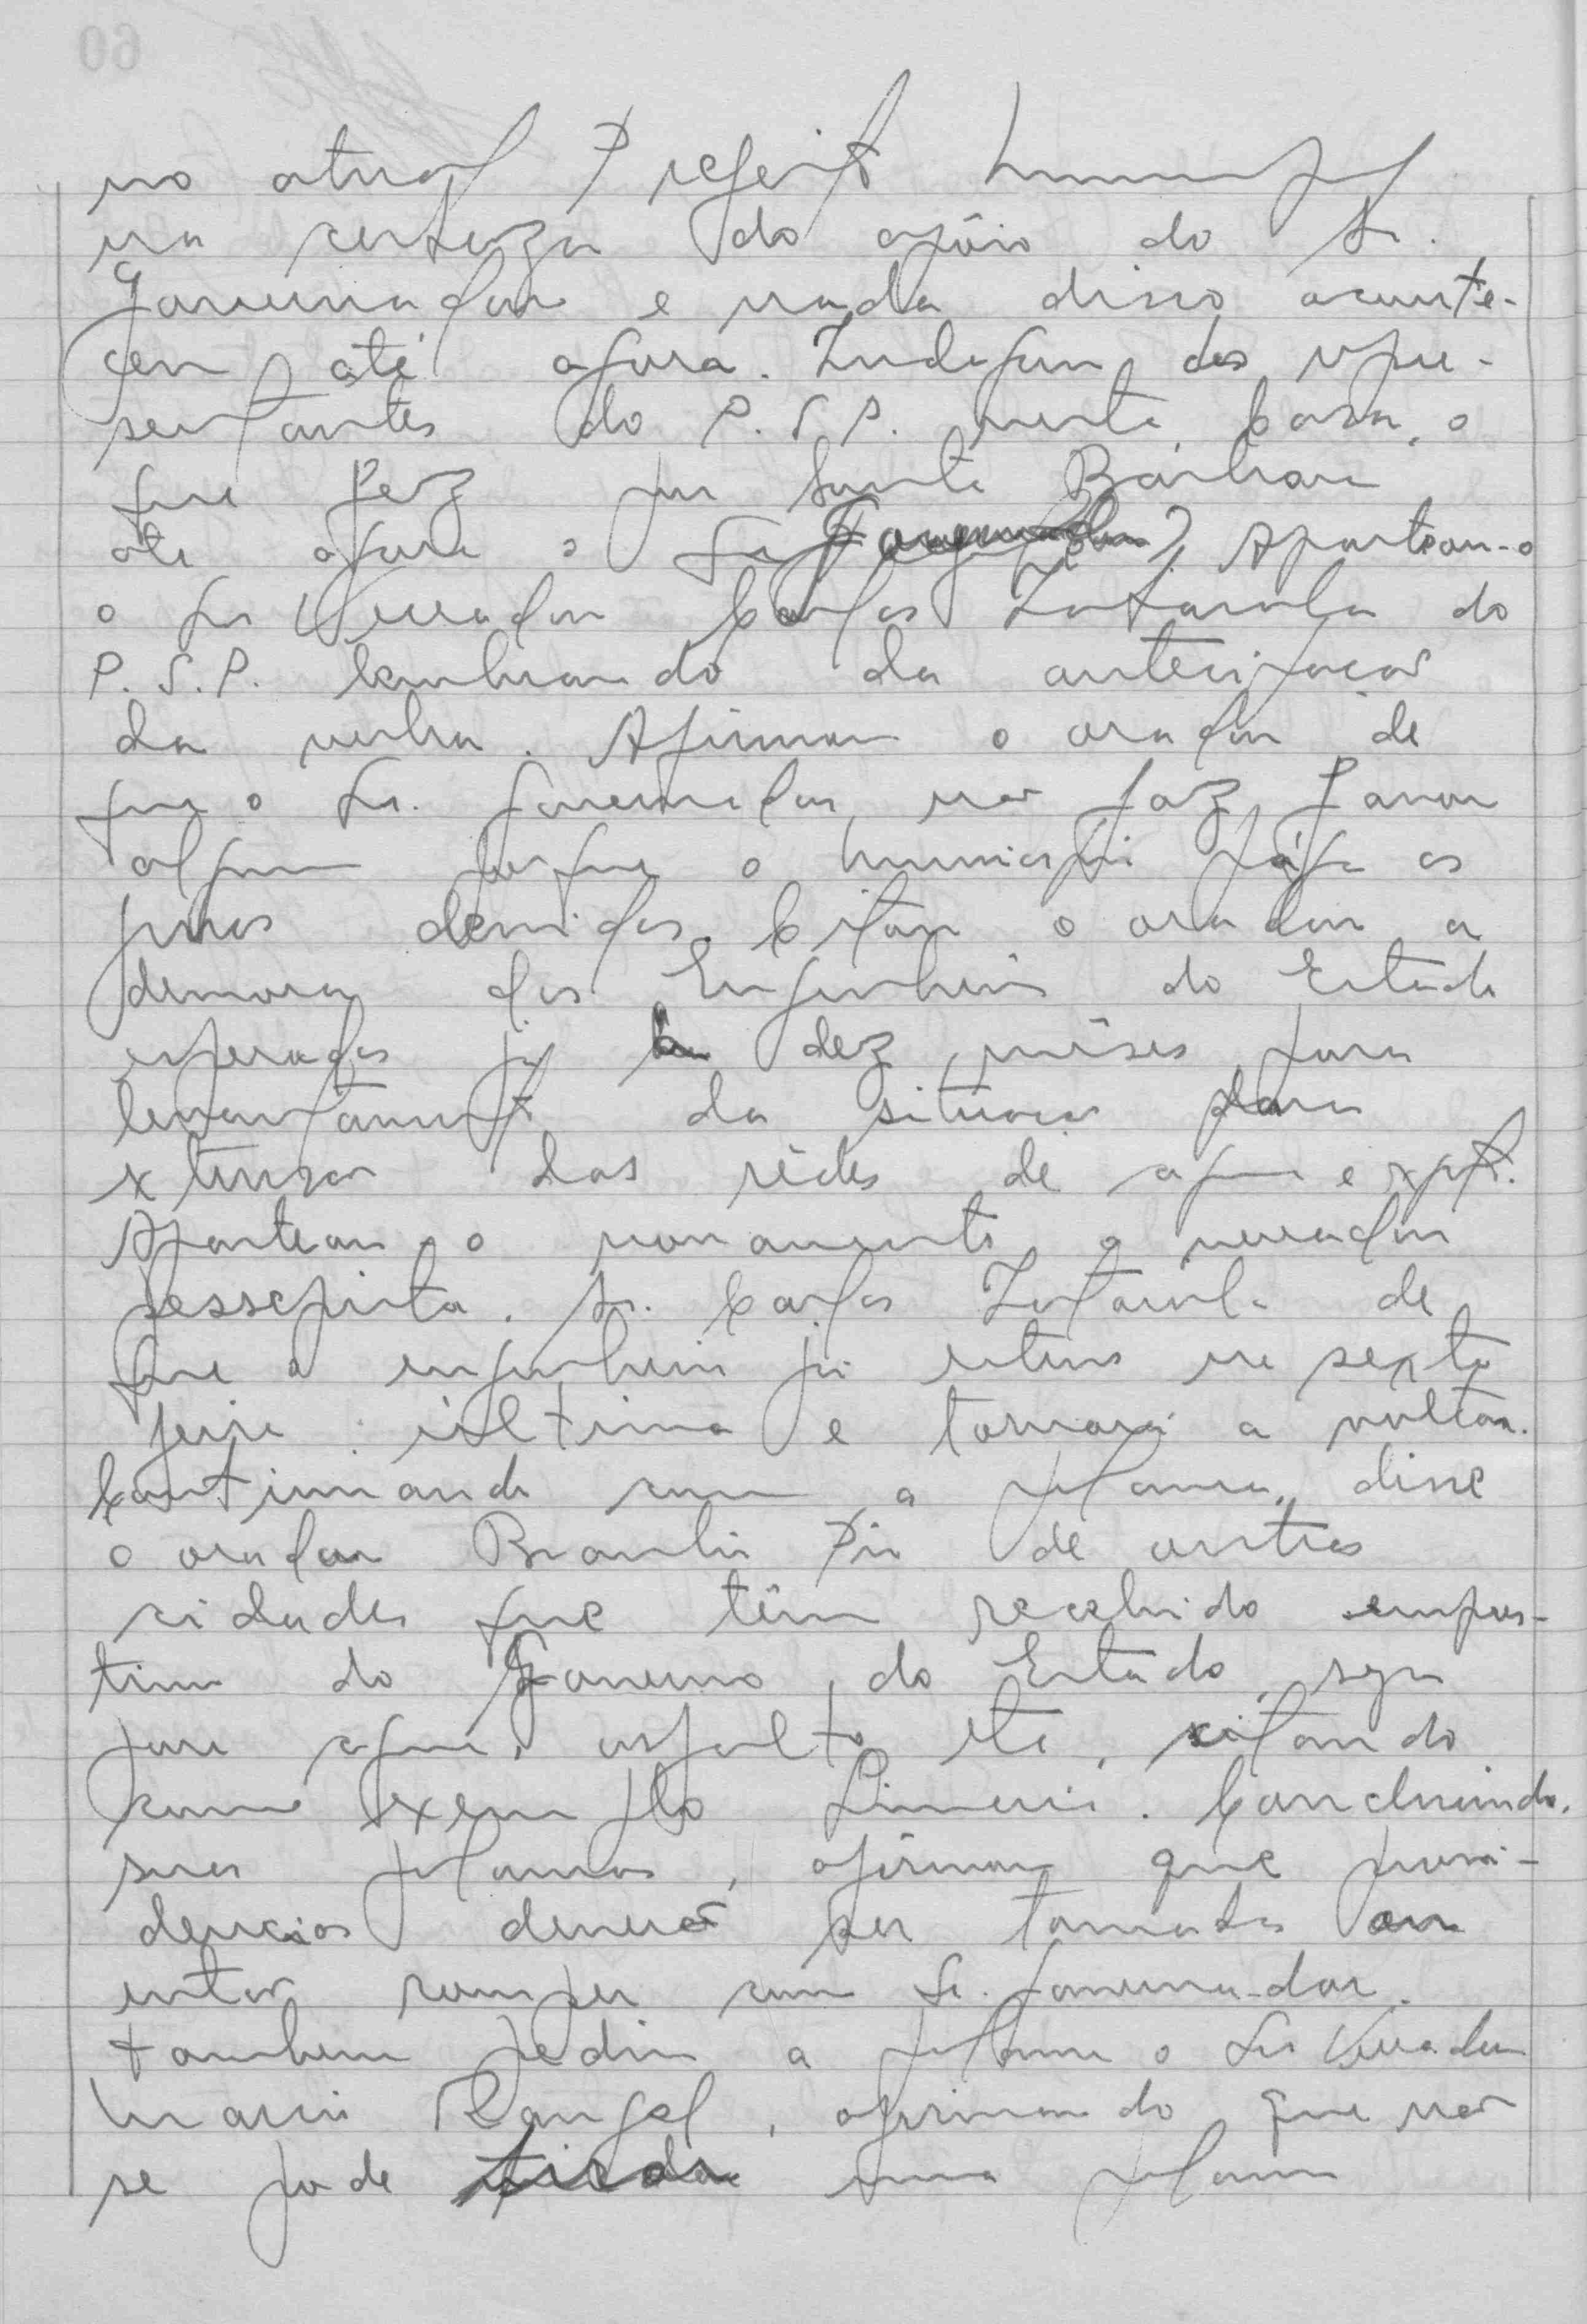 no atual Prefeito Municipal
na certeza do apôio do Sr.
Governador e nada disso aconte-
ceu até agora. Indagou dos repre-
sentantes do P.S.P. nesta Casa, o
que fez por Santa Bárbara
até agora o Sr. Governador? Aparteou-o
o Sr. Vereador Carlos do
P.S.P. lembrando da antecipação
da verba. Afirmou o orador de
que o Sr. Governador não faz favor
algum porque o município pága os
juros devidos. Citou o orador a
demora dos Engenheiros do Estado
esperados já ha dez mêses para
levantamento da situação para
extensão das rêdes de agua e expt.
Aparteou-o novamente o vereador
pessepista. Sr. Carlos de
que o engenheiro já esteve na sexta
feira última e tornará a voltar.
Continuando com a palavra, disse
o orador Braulio Pio de outras
cidades que têm recebido empres-
timo do Governo do Estado, seja
para agua, asfalto etc, citando
como exemplo Limeira. Concluindo,
suas palavras, afirmou que provi-
dencias deverão ser tomadas ou
então romper com Sr. Governador.
Tambem pediu a palavra o Sr. Vereador
Mario Rangel, afirmando que não
se pode uma palavra